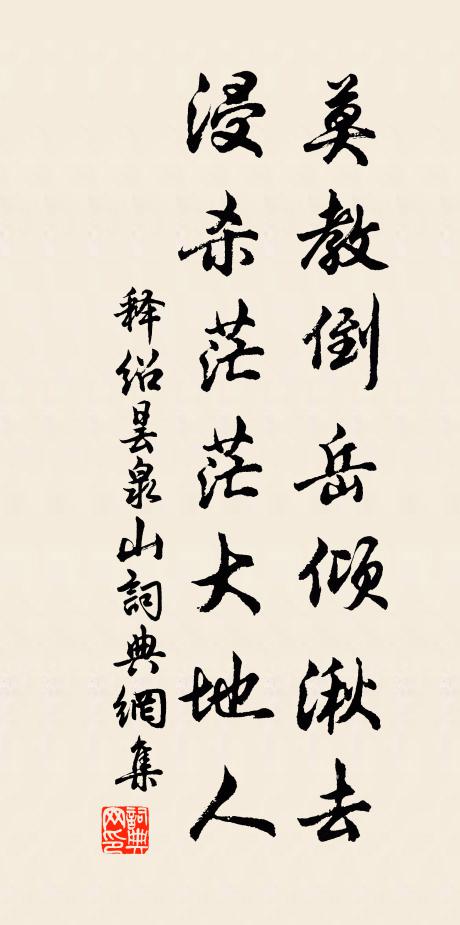 莫教倒岳倾湫去
浸杀茫茫大地人
释绍昙泉山詞典網集
詞典网印